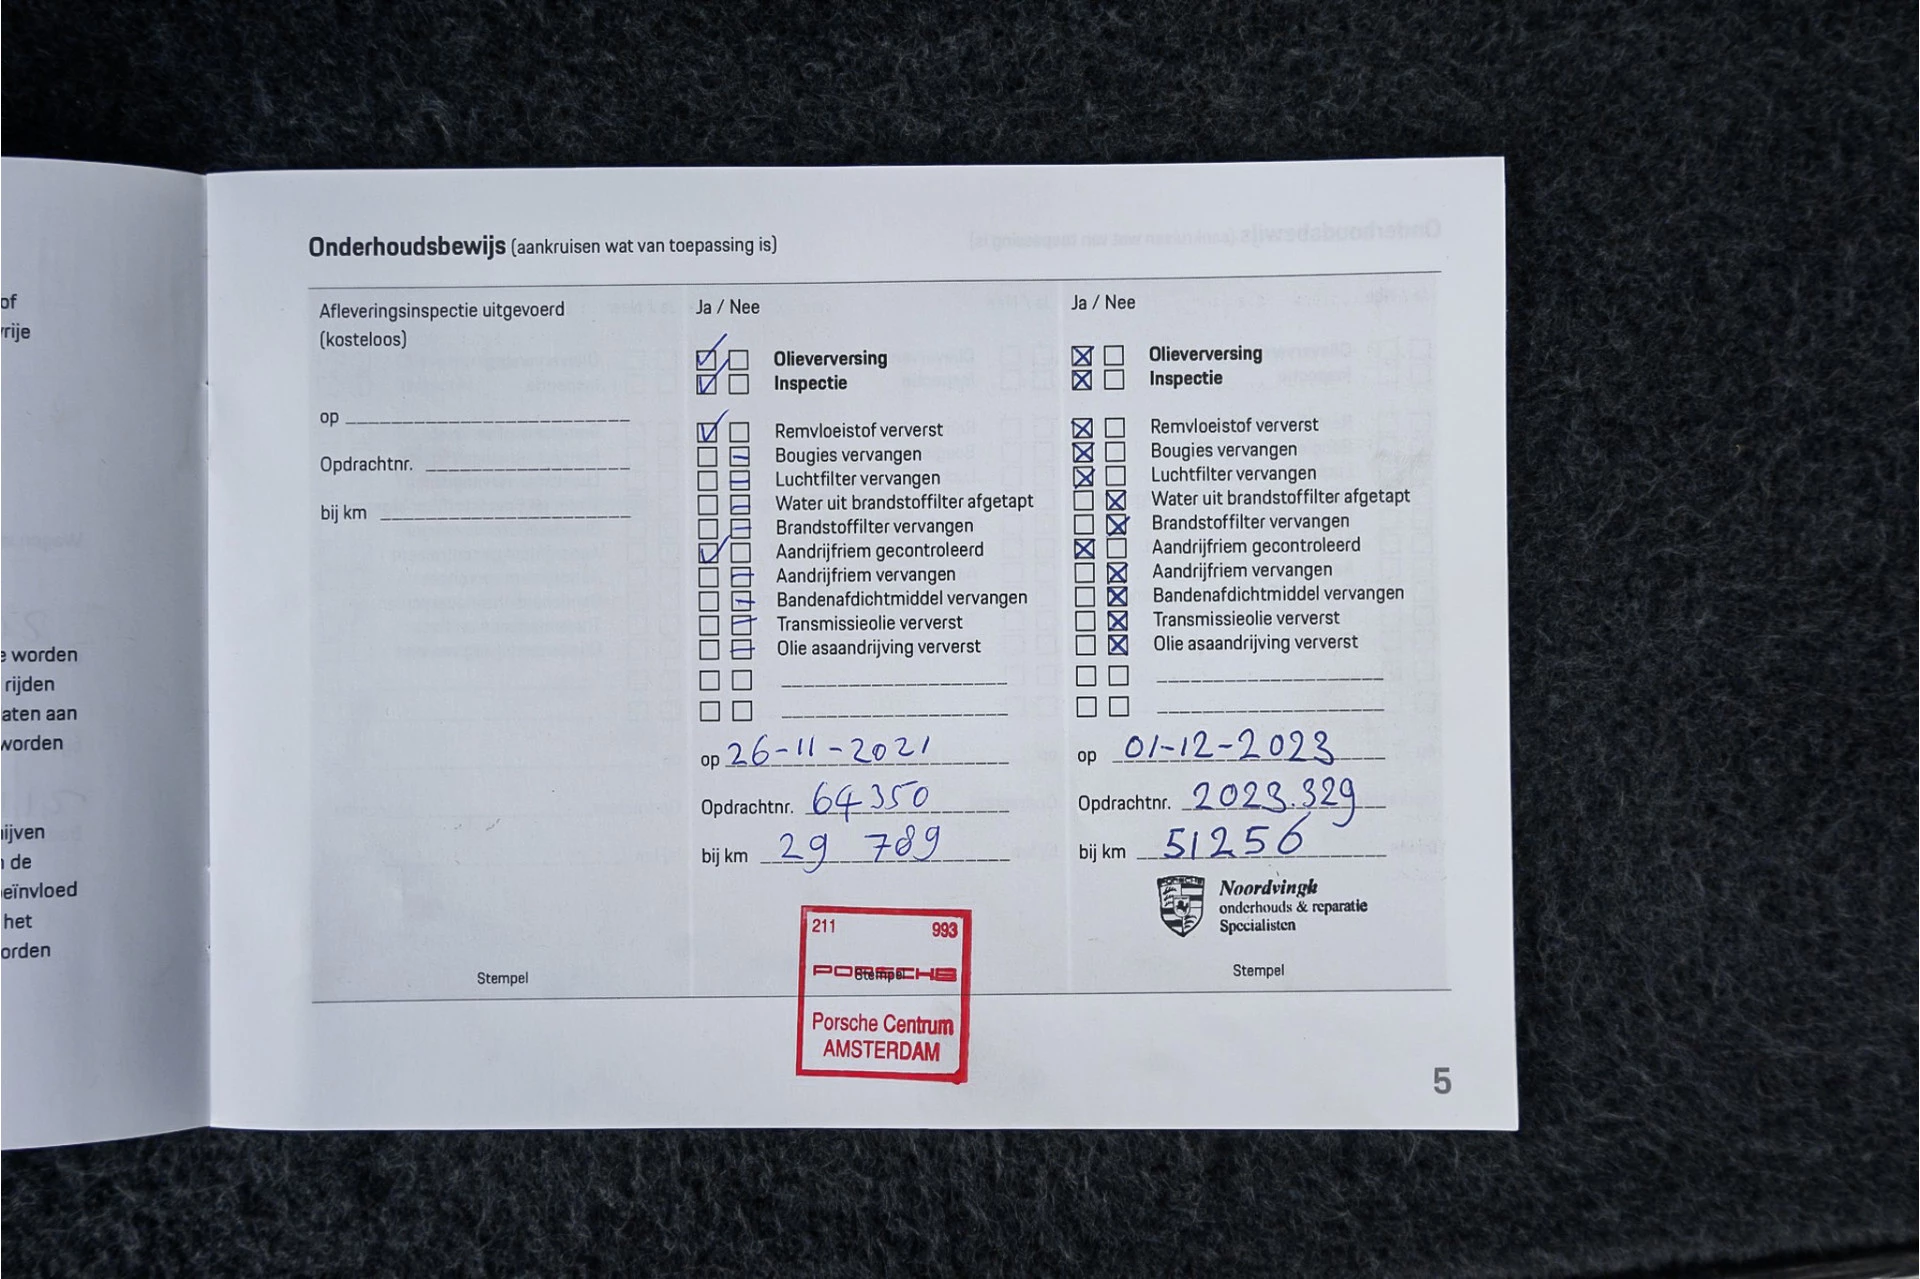 of
rije
e worden
rijden
aten aan
worden
ijven
de
eïnvloed
het
orden
Onderhoudsbewijs (aankruisen wat van toepassing is)
Afleveringsinspectie uitgevoerd
(kosteloos)
op
Opdrachtnr.
bij km
Stempel
Ja / Nee
Olieverversing
Inspectie
Remvloeistof ververst
Bougies vervangen
Luchtfilter vervangen
Water uit brandstoffilter afgetapt
Brandstoffilter vervangen
Aandrijfriem gecontroleerd
Aandrijfriem vervangen
Bandenafdichtmiddel vervangen
Transmissieolie ververst
Olie asaandrijving ververst
op 26-11-2021
Opdrachtnr. 64350
bij km 29 789
211 993
PORSCHE
Stempel
Porsche Centrum
AMSTERDAM
Ja / Nee
Olieverversing
Inspectie
Remvloeistof ververst
Bougies vervangen
Luchtfilter vervangen
Water uit brandstoffilter afgetapt
Brandstoffilter vervangen
Aandrijfriem gecontroleerd
Aandrijfriem vervangen
Bandenafdichtmiddel vervangen
Transmissieolie ververst
Olie asaandrijving ververst
op 01-12-2023
Opdrachtnr. 2023.329
bij km 51256
PORSCHE
Noordvingk
onderhouds & reparatie
Specialisten
Stempel
5